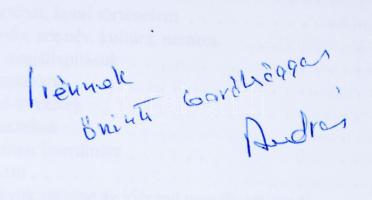 Irénnek
őszinte barátsággal
András